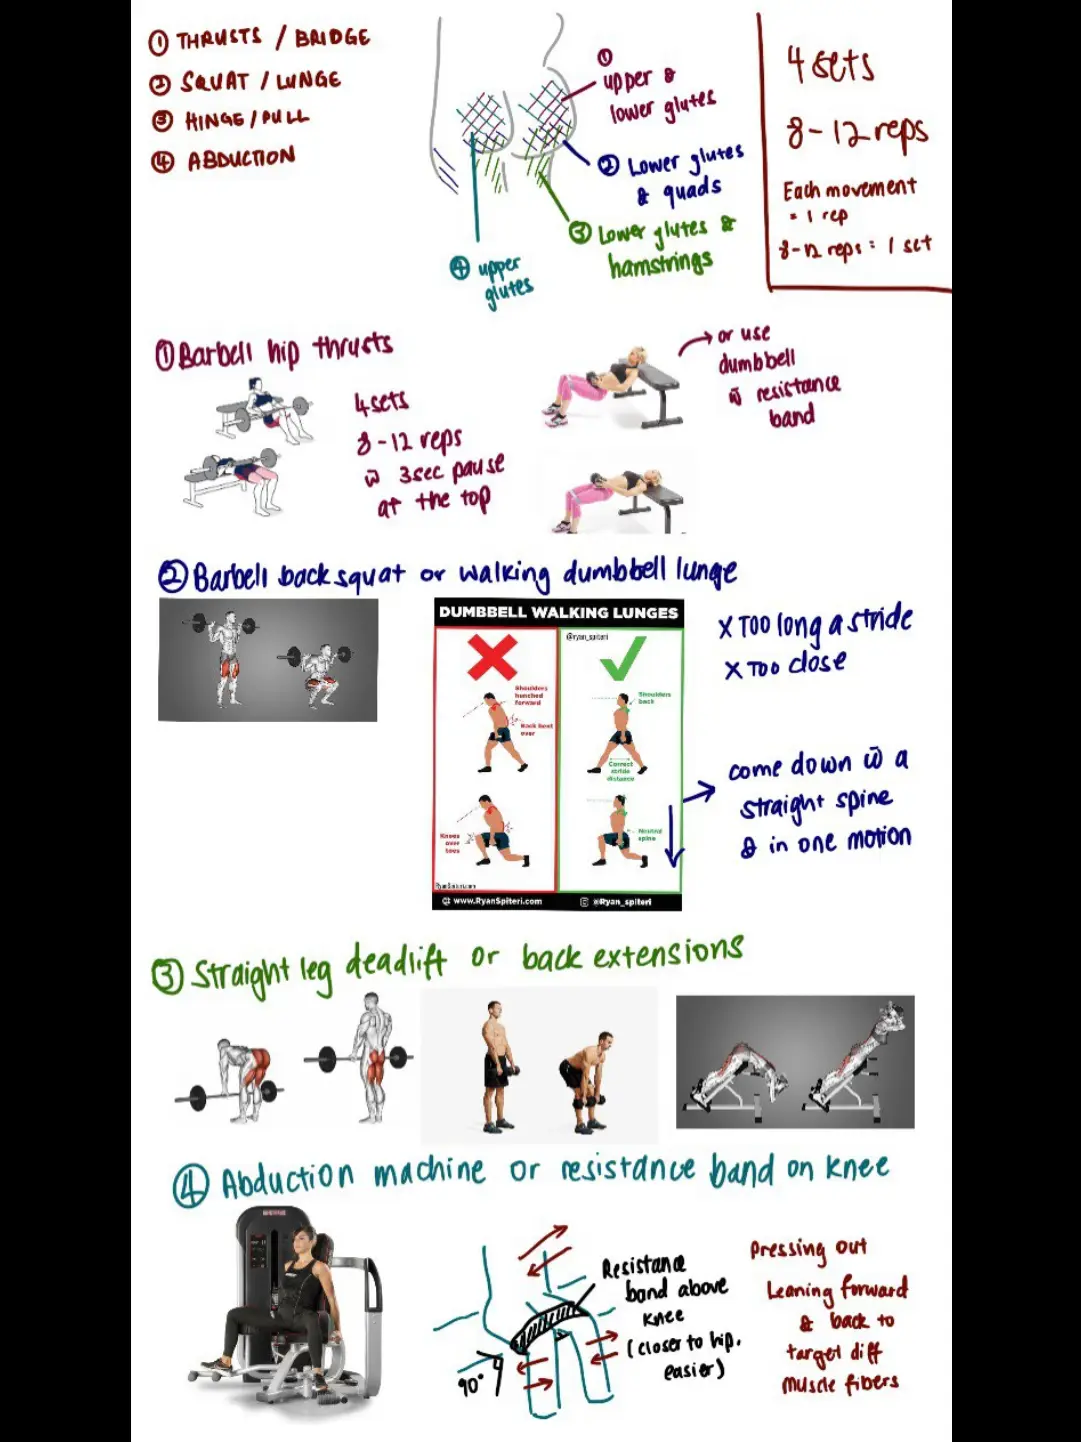 ① THRUSTS / BRIDGE
② SQUAT / LUNGE
③ HINGE / PULL
④ ABDUCTION
①
upper &
lower glutes
② Lower glutes
& quads
③ Lower glutes &
hamstrings
④ upper
glutes
4 sets
8-12 reps
Each movement
= 1 rep
8-12 reps = 1 set
① Barbell hip thrusts
4 sets
8-12 reps
w̄ 3sec pause
at the top
or use
dumbbell
w̄ resistance
band
② Barbell back squat or walking dumbbell lunge
DUMBBELL WALKING LUNGES
@ryan_spiteri
Shoulders
hunched
forward
Back bent
over
Shoulders
back
Correct
stride
distance
Knees
over
toes
Neutral
spine
RyanSpiteri.com
www.RyanSpiteri.com
@Ryan_spiteri
X TOO long a stride
X Too close
come down w̄ a
straight spine
& in one motion
③ Straight leg deadlift or back extensions
④ Abduction machine or resistance band on knee
Resistance
band above
knee
(closer to hip,
easier)
90°
Pressing out
Leaning forward
& back to
target diff
muscle fibers